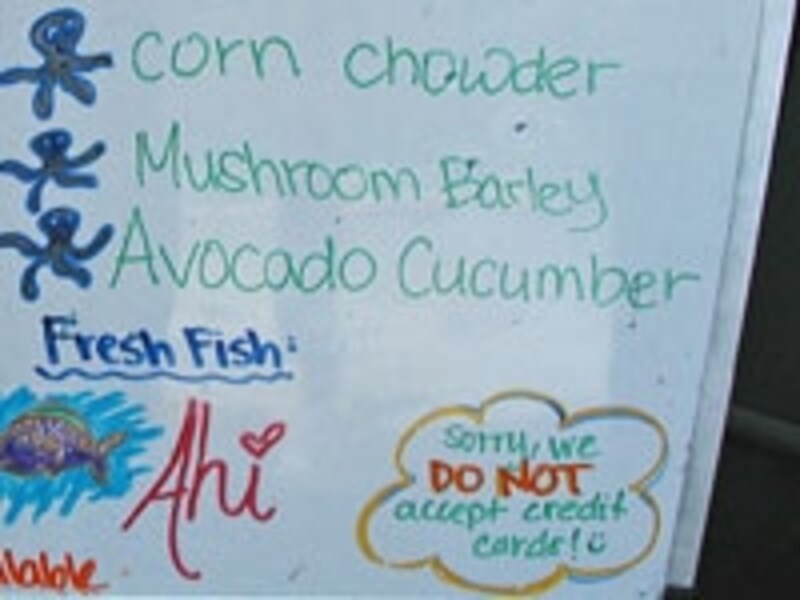 corn chowder
Mushroom Barley
Avocado Cucumber
Fresh Fish:
Ahi
sorry, we
DO NOT
accept credit
cards!